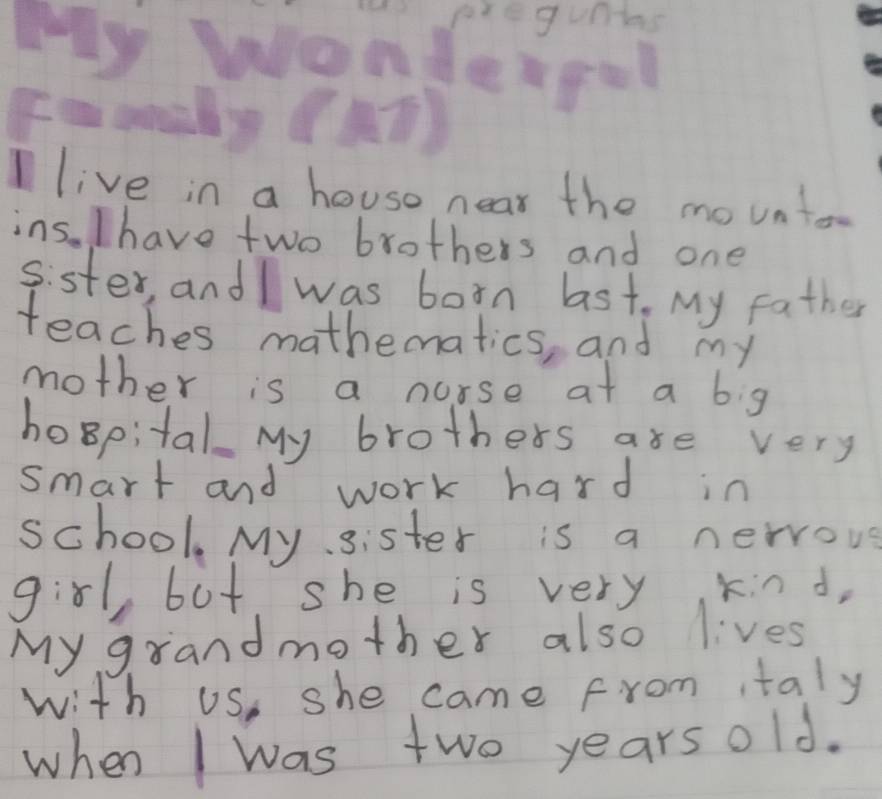 preguntas
My Wonderful
Family (A1)
I live in a house near the mounta
ins. I have two brothers and one
sister, and I was born last. My father
teaches mathematics, and my
mother is a nurse at a big
hospital. My brothers are very
smart and work hard in
school. My sister is a nervous
girl, but she is very kind.
My grandmother also lives
with us. she came from italy
when I was two years old.